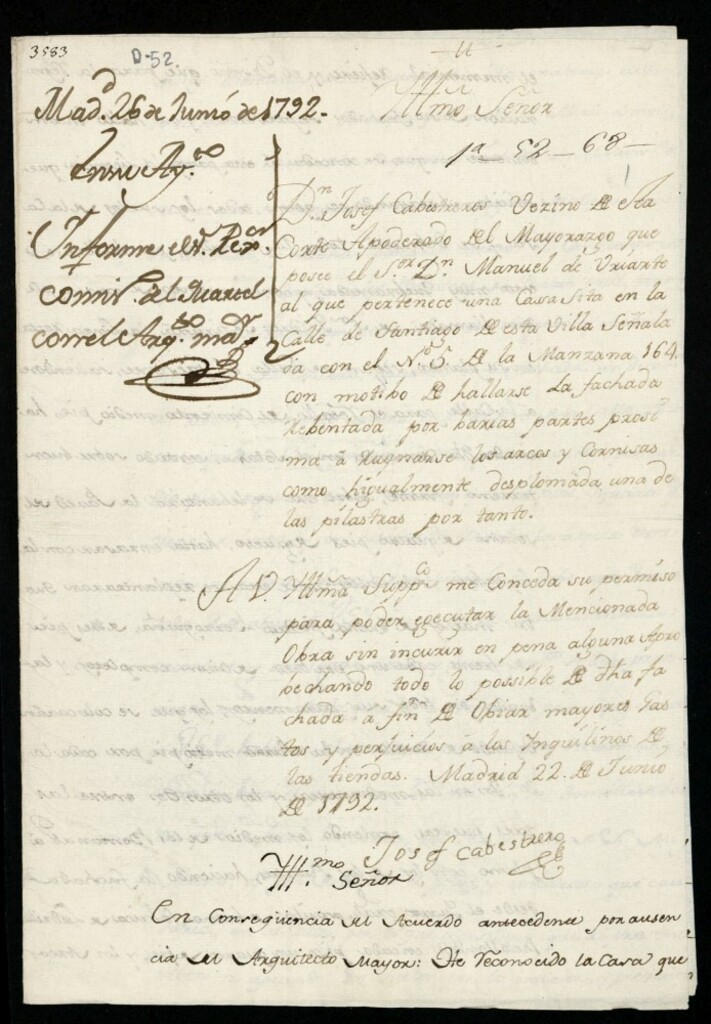 3583
D-52.
Mad.d 26 de Junio de 1792.
en su Ay.to
Informe el S.r Rex.or
comis.o del Quartel
con el Arq.to may.r
Yll.mo Señor
1ª - 52 - 68 -
D.n Josef Cabestreros Vezino de esta
Corte Apoderado del Mayorazgo que
posee el S.or D.n Manuel de Uriarte
al que pertenece una Casa Sita en la
Calle de Santiago de esta Villa Señala
da con el N.º 5. de la Manzana 164.
con motibo de hallarse la fachada
rebentada por barias partes prosi
ma à Ruynarse los arcos y Cornisas
como higualmente desplomada una de
las pilastras por tanto.
A V. Yllma Supp.co me Conceda su permiso
para poder egecutar la Mencionada
Obra sin incurir en pena alguna Apro
bechando todo lo posible de dha fa
chada a fin de Obiar mayores Gas
tos y perjuicios à los Ynquilinos de
las tiendas. Madrid 22. de Junio
de 1792.
Josef Cabestrero
Yll.mo Señor
En Conseqüencia del Acuerdo antecedente por ausen
cia del Arquitecto Mayor: He reconocido la Casa que